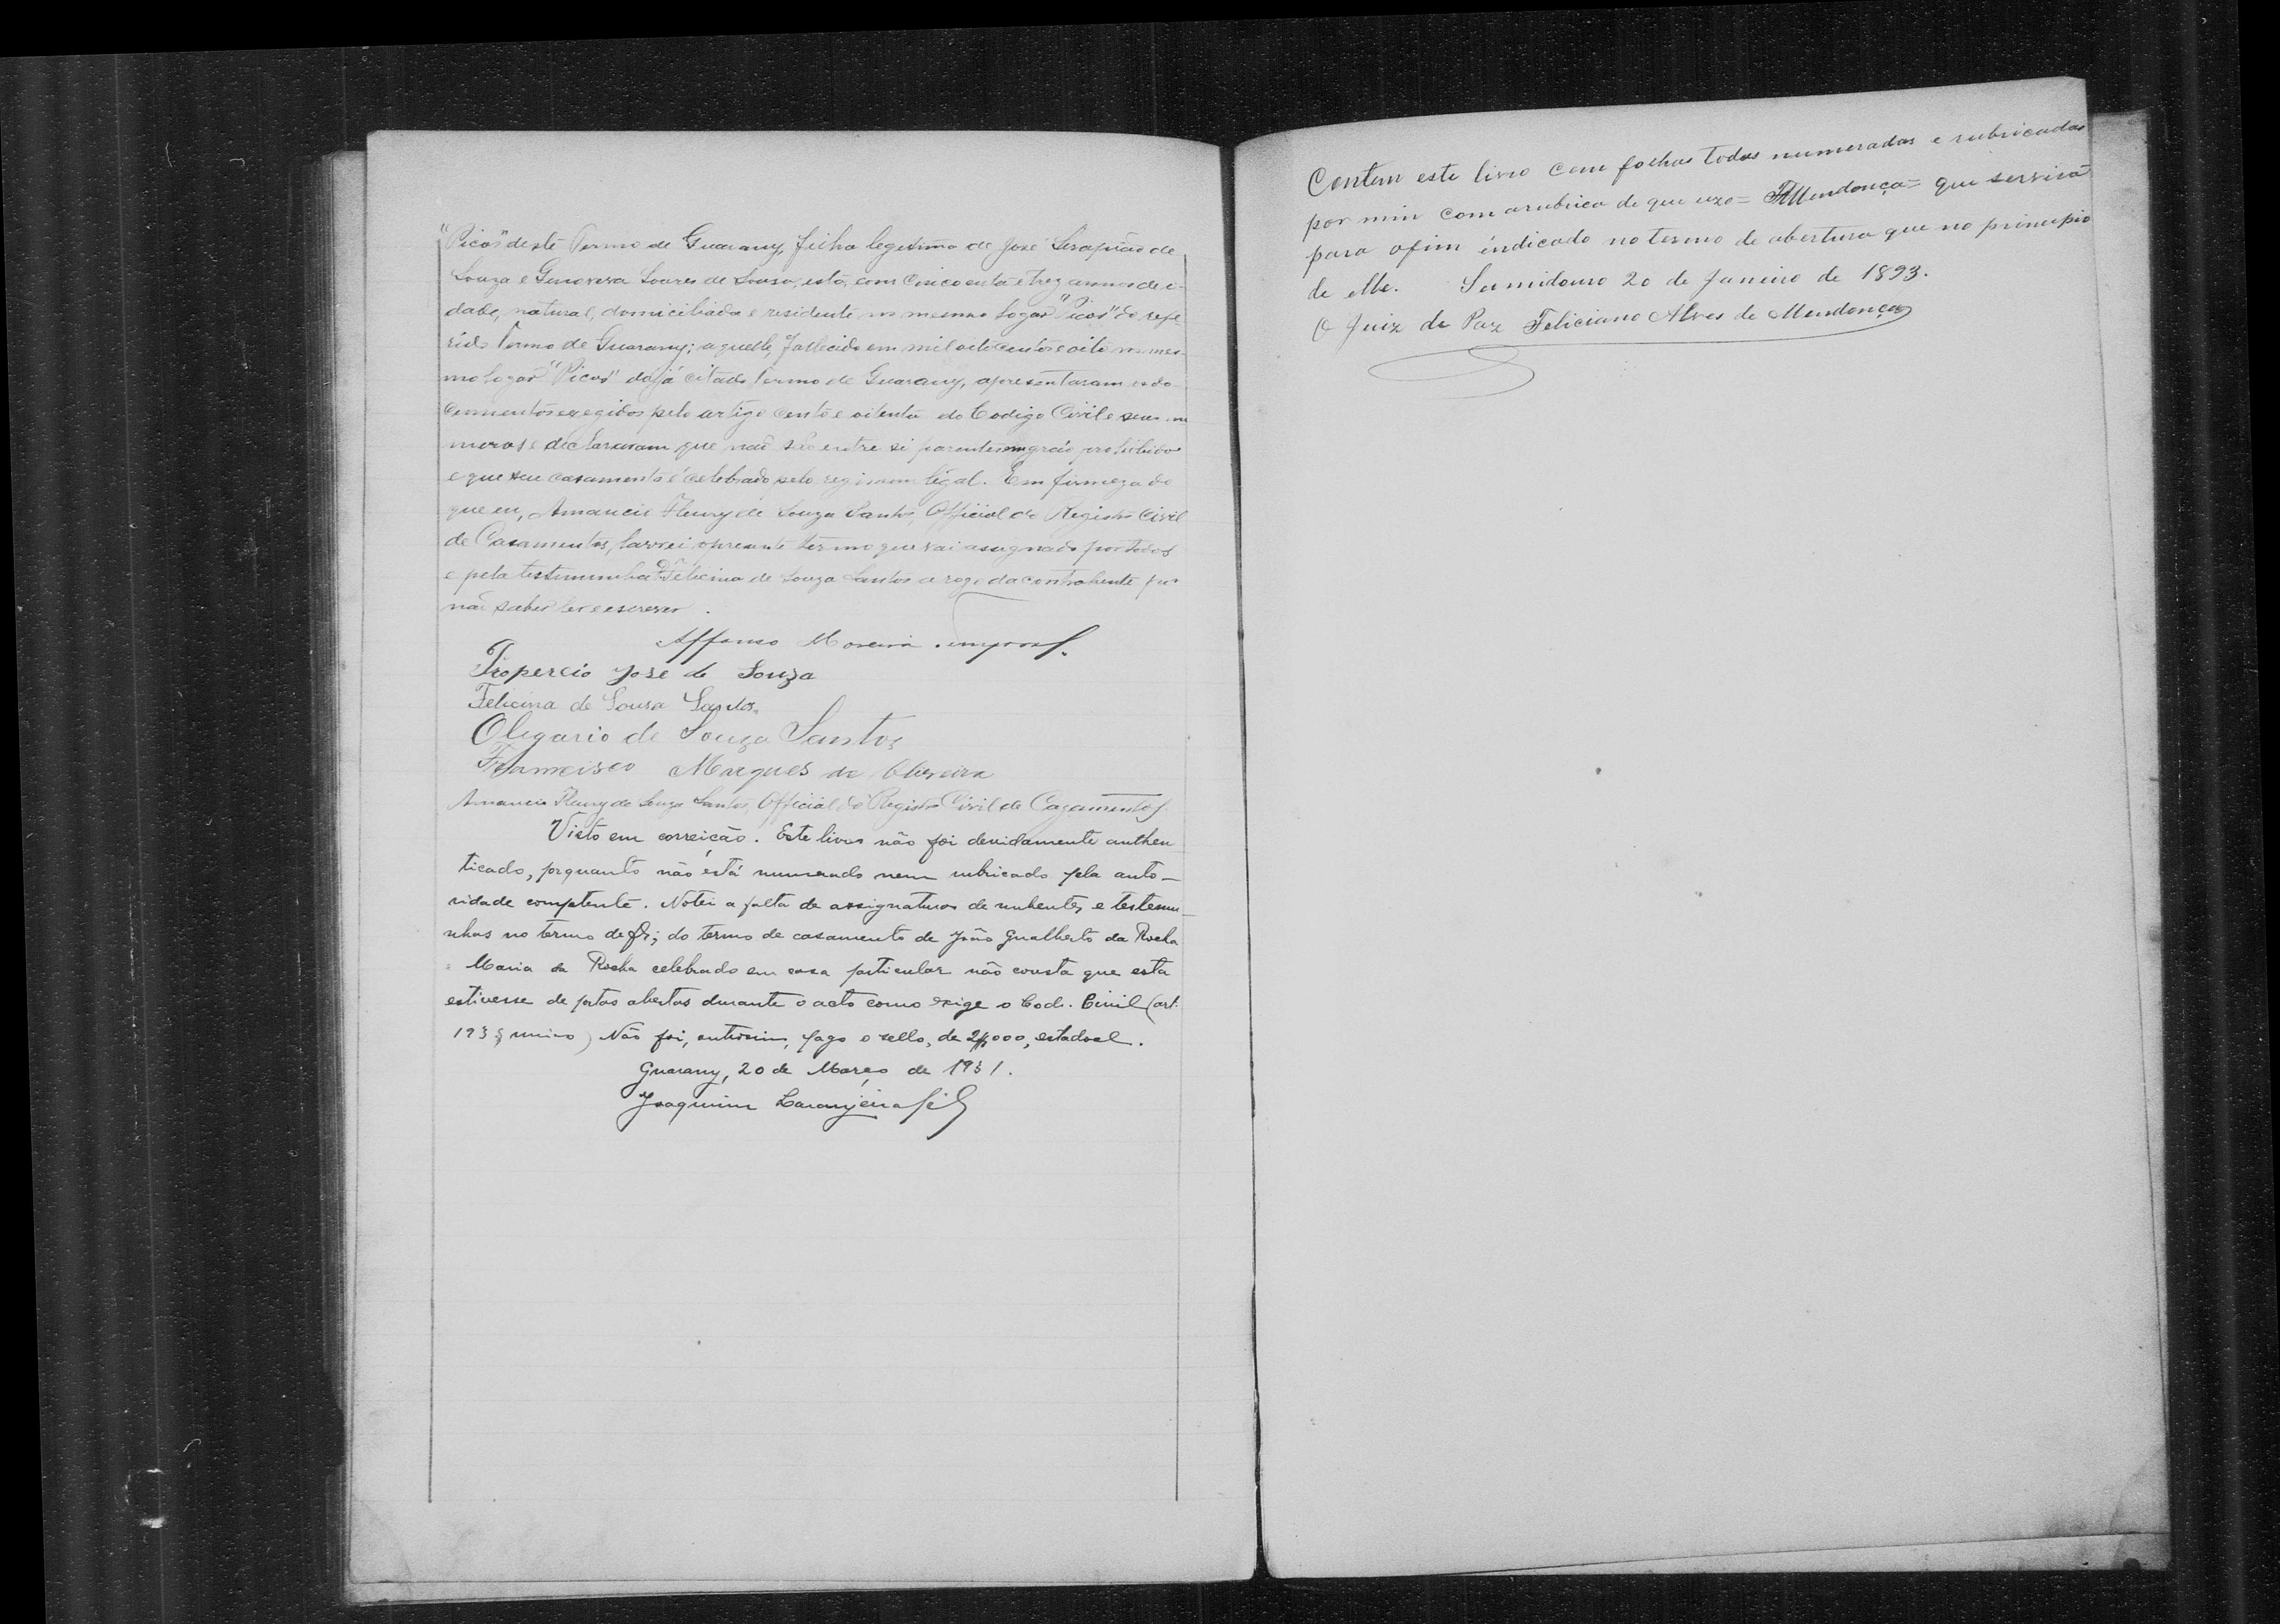 "Picos" deste Termo de Guarany, filha legitima de José Serapião de
Souza e Genoveva Soares de Sousa, esta, com cincoenta e trez annos de i-
dade, natural, domiciliada e residente no mesmo logar "Picos" do refe-
rido Termo de Guarany; aquelle, fallecido em mil oitocentos e oito no mes-
mo logar "Picos" do já citado Termo de Guarany, apresentaram os do-
cumentos exegidos pelo artigo cento e oitenta do Codigo Civil e seus nu
meros e declararam que não são entre si parentes em gráo prohibido
e que seu casamento é celebrado pelo regimem legal. Em firmeza do
que eu, Amancio Fleury de Souza Santos, Official do Registro Civil
de Casamentos, lavrei o presente termo que vai assignado por todos
e pela testimunha Dª Felicina de Souza Santos a rogo da contrahente por
não saber ler e escrever.
Affonso Moreira
Propercio José de Souza
Felicina de Sousa Santos.
Olegario de Souza Santos
Francisco Marques de Oliveira
Amancio Fleury de Souza Santos, Official do Registro Civil de Cazamentos
Visto em correição. Este livro não foi devidamente authen
ticado, porquanto não está numerado nem rubricado pela auto-
ridade competente. Notei a falta de assignaturas de nubentes e testemu-
nhas no termo de fls; do termo de casamento de João Gualberto da Rocha
Maria da Rocha celebrado em casa particular não consta que esta
estivesse de portas abertas durante o acto como exige o Cod. Civil (art.
193 § unico) Não foi, outrosim, pago o sello, de 2$000, estadoal.
Guarany, 20 de Março de 1931.
Joaquim Laranjeira
Contem este livro cem folhas todas numeradas e rubricadas
por mim com a rubrica de que uzo = FAMendonça = que servirá
para o fim indicado no termo de abertura que no principio
de elle. Sumidouro 20 de Janeiro de 1893.
O Juiz de Paz Feliciano Alves de Mendonça